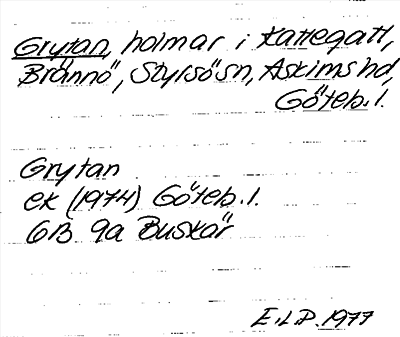 Grytan, holmar i Kattegatt,
Brännö, Styrsö sn, Askims hd,
Göteb. l.
Grytan
ek (1974) Göteb. l.
6B 9a Buskär
E.L.P. 1977